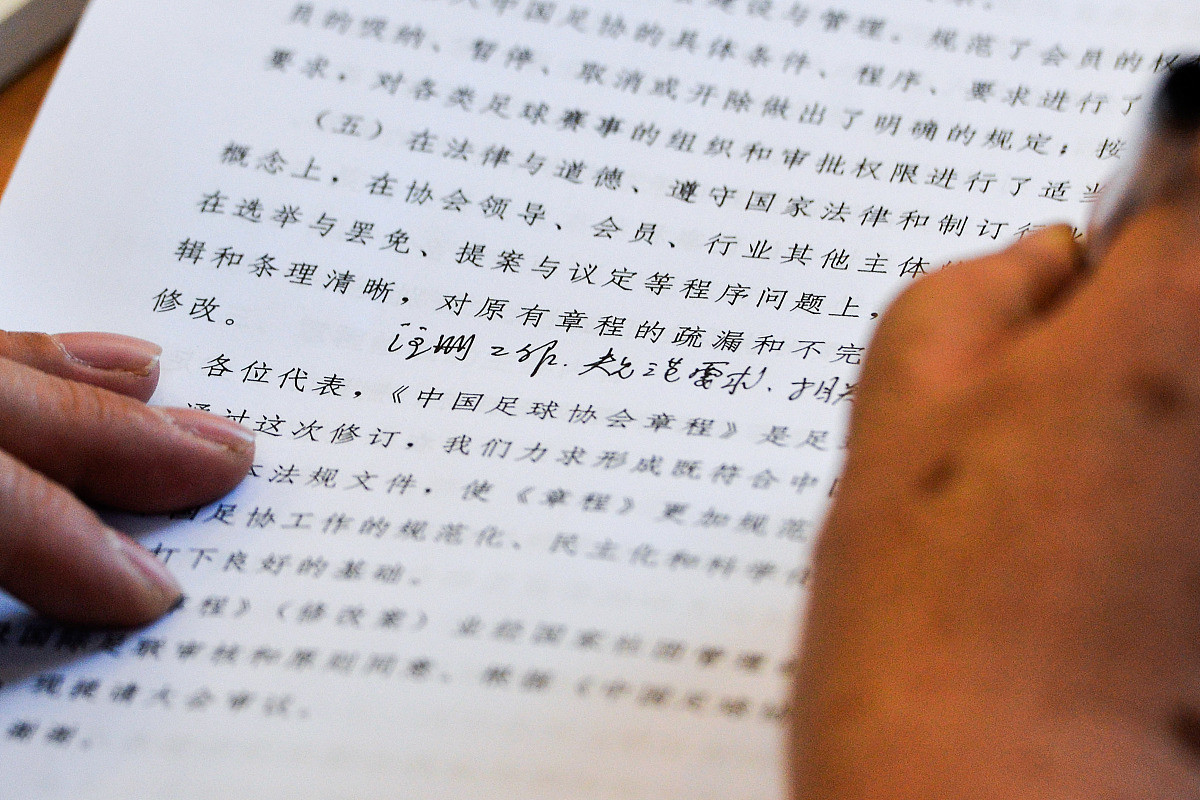 中国足协的具体条件、程序、要求进行了
建设与管理，规范了会员的权
员的吸纳、暂停、取消或开除做出了明确的规定；按
要求，对各类足球赛事的组织和审批权限进行了适当
（五）在法律与道德、遵守国家法律和制订行业
概念上，在协会领导、会员、行业其他主体
在选举与罢免、提案与议定等程序问题上，
辑和条理清晰，对原有章程的疏漏和不完
修改。
注册工作、规范需求、相关
各位代表，《中国足球协会章程》是足
通过这次修订，我们力求形成既符合中
本法规文件，使《章程》更加规范
国足协工作的规范化、民主化和科学
打下良好的基础。
章程》（修改案）业经国家体育管理
国际足联审核和原则同意。根据《中国足球
现提请大会审议。
谢谢。